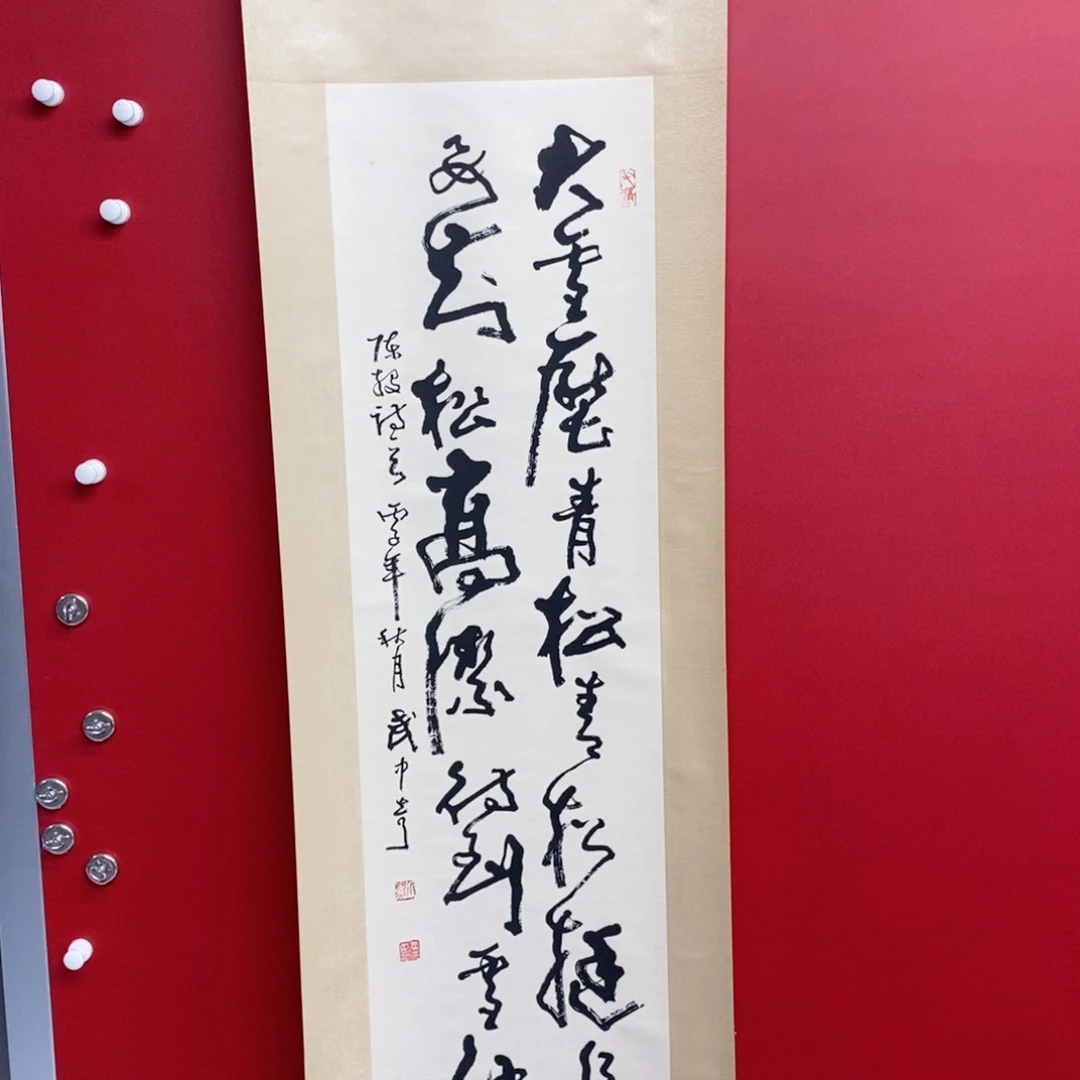 大雪壓青松青松挺
要知松高潔待到雪化
陳毅詩 丙子年秋月武中奇